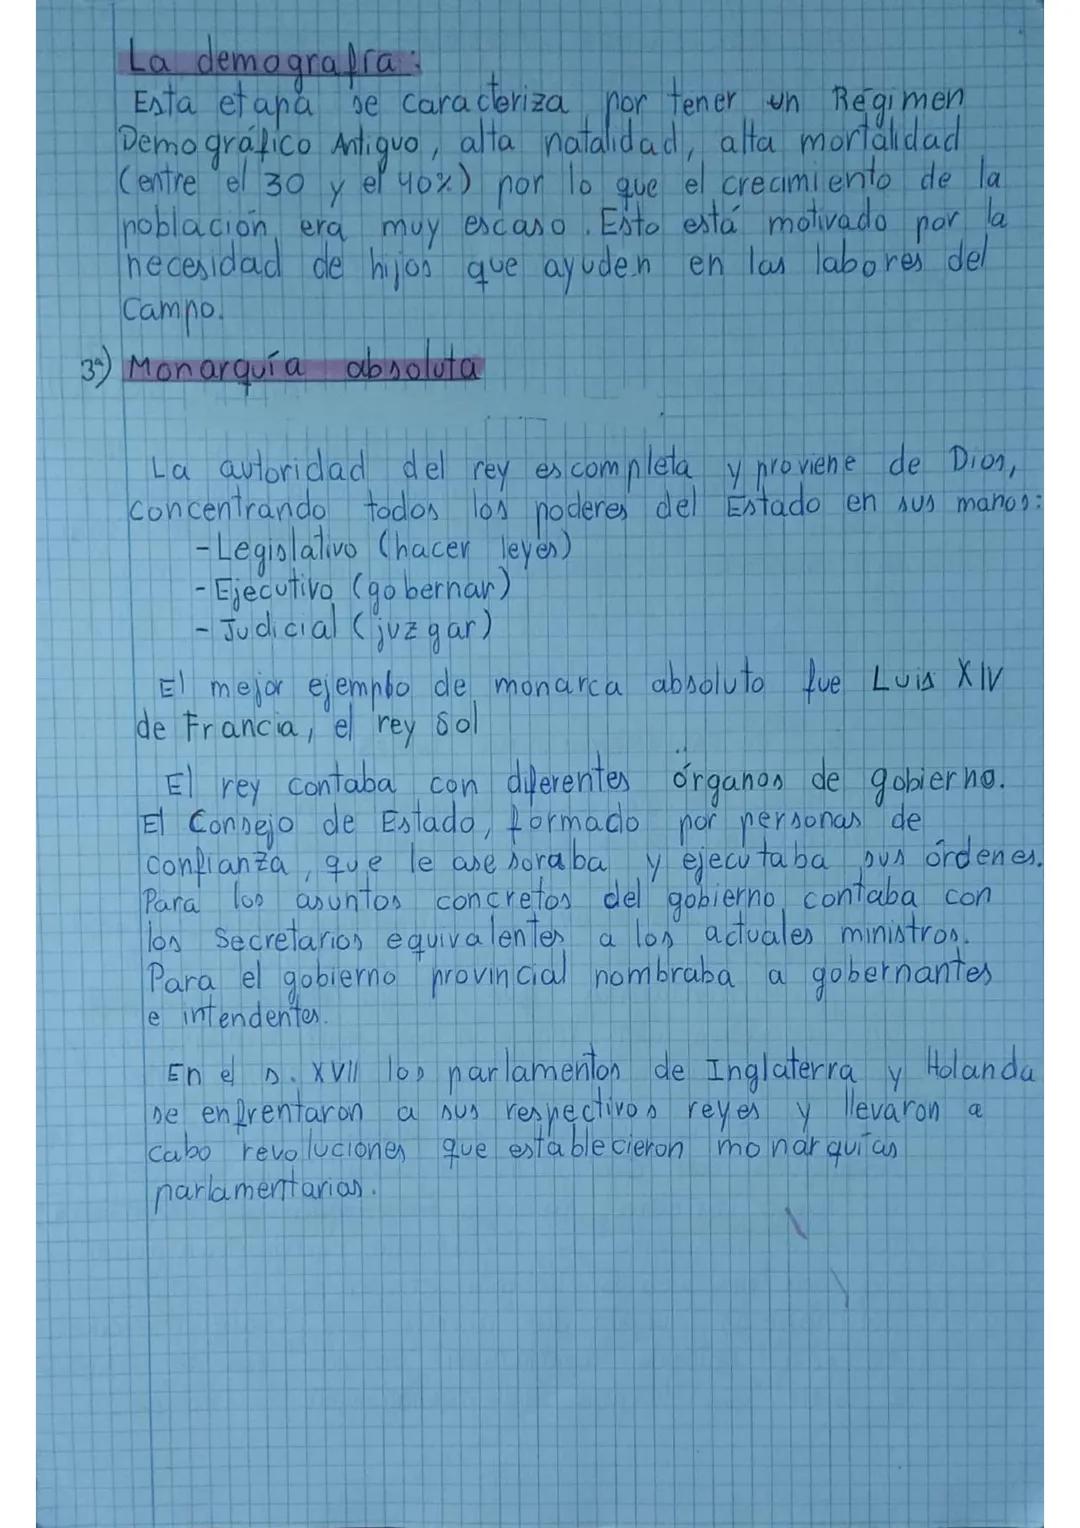 La demografía:
Esta etapa se caracteriza por tener un Régimen
Demográfico Antiguo, alta natalidad, alta mortalidad
(entre el 30 y el 40%) por lo que el crecimiento de la
población era muy escaso. Esto está motivado por la
necesidad de hijos que ayuden en las labores del
Campo.
3º) Monarquía absoluta
La autoridad del rey es completa y proviene de Dios,
concentrando todos los poderes del Estado en sus manos:
-Legislativo (hacer leyes)
-Ejecutivo (gobernar)
- Judicial (juzgar)
El mejor ejemplo de monarca absoluto fue Luis XIV
de Francia, el rey Sol
El rey contaba con diferentes órganos de gobierno.
El Consejo de Estado, formado por personas de
confianza, que le asesoraba y ejecutaba sus órdenes.
Para los asuntos concretos del gobierno contaba con
los Secretarios equivalentes a los actuales ministros.
Para el gobierno provincial nombraba a gobernantes
e intendentes.
En el s. XVII los parlamentos de Inglaterra y Holanda
se enfrentaron a sus respectivos reyes y llevaron a
cabo revoluciones que establecieron monarquías
parlamentarias.